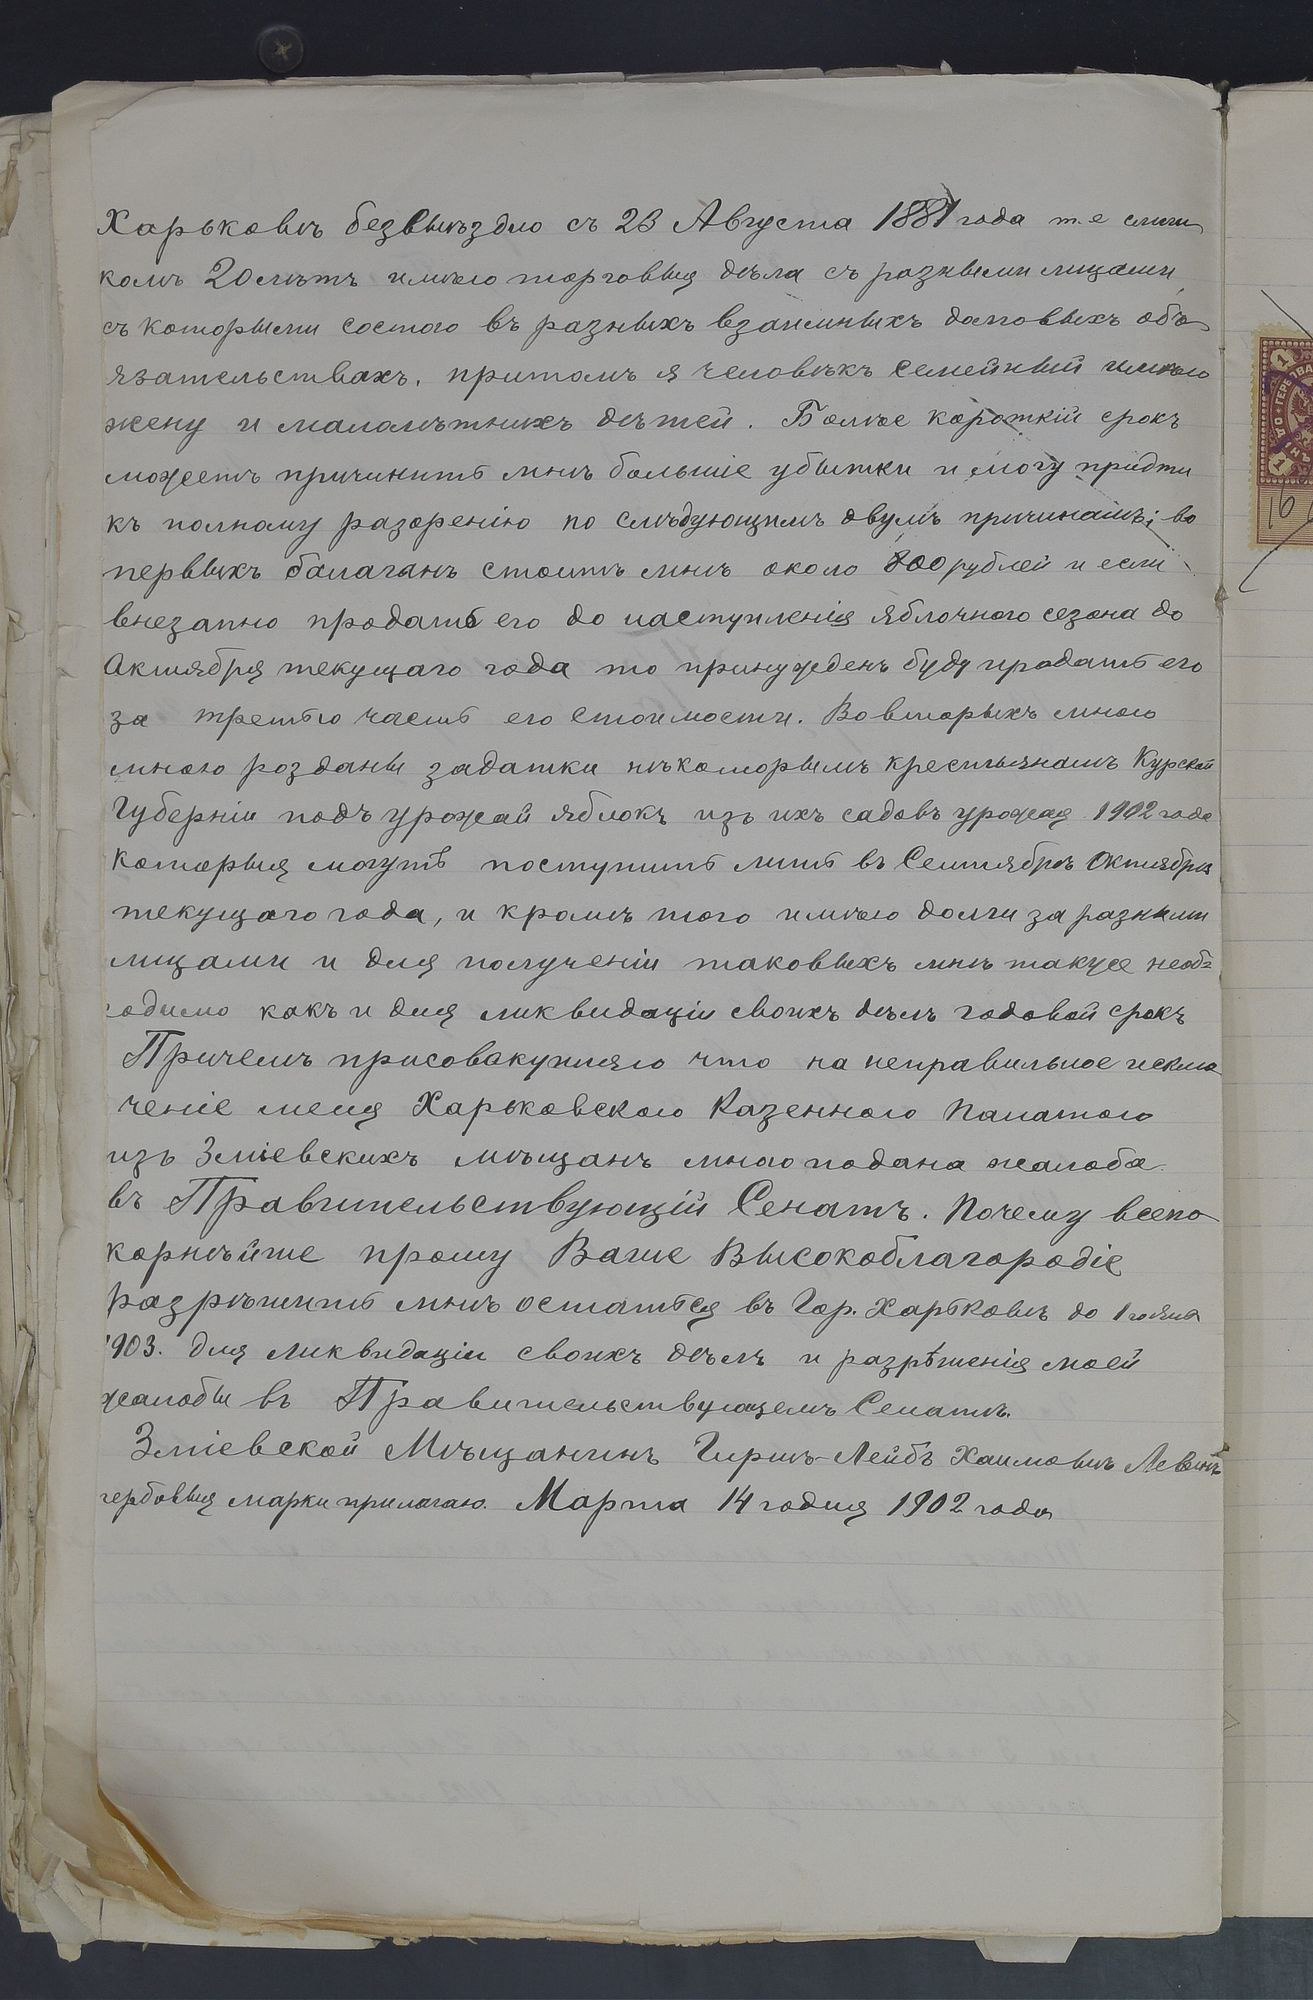 Харьковѣ безвыѣздно съ 23 Августа 1881 года т.е слиш
комъ 20 лѣтъ имѣю торговыя дѣла съ разными лицами
съ которыми состою въ разныхъ взаимныхъ долговыхъ объ
язательствахъ, притомъ я человѣкъ семейный имѣю
жену и малолѣтнихъ дѣтей. Болѣе короткій срокъ
можетъ причинить мнѣ большіе убытки и могу придти
къ полному разоренію по слѣдующимъ двумъ причинамъ; во
первыхъ балаганъ стоитъ мнѣ около 800 рублей и если
внезапно продать его до наступленія яблочного сезона до
Октября текущаго года то принужденъ буду продать его
за третью часть его стоимости. Вовторыхъ мною
мною розданы задатки нѣкоторымъ крестьянамъ Курской
Губерніи подъ урожай яблокъ изъ ихъ садовъ урожая 1902 года
которыя могутъ поступить лишь въ Сентябрѣ Октября
текущаго года, и кромѣ того имѣю долги за разными
лицами и для полученіи таковыхъ мнѣ также необ=
ходимо какъ и для ликвидаціи своихъ дѣлъ годовой срокъ
Причемъ присовакупляю что на неправильное исклю
ченіе меня Харьковскою Казенною Палатою
изъ Зміевскихъ мѣщанъ мною подана жалоба
въ Правительствующій Сенатъ. Почему всепо
корнѣйше прошу Ваше Высокоблагородіе
разрѣшить мнѣ остаться въ Гор. Харьковѣ до 1 го
1903. для ликвидаціи своихъ дѣлъ и разрѣшенія моей
жалобы въ Правительствующемъ Сенатѣ.
Зміевской Мѣщанинъ Гиршъ-Лейбъ Хаимовъ Левинъ
гербовыя марки прилагаю. Марта 14 годня 1902 года
1
1